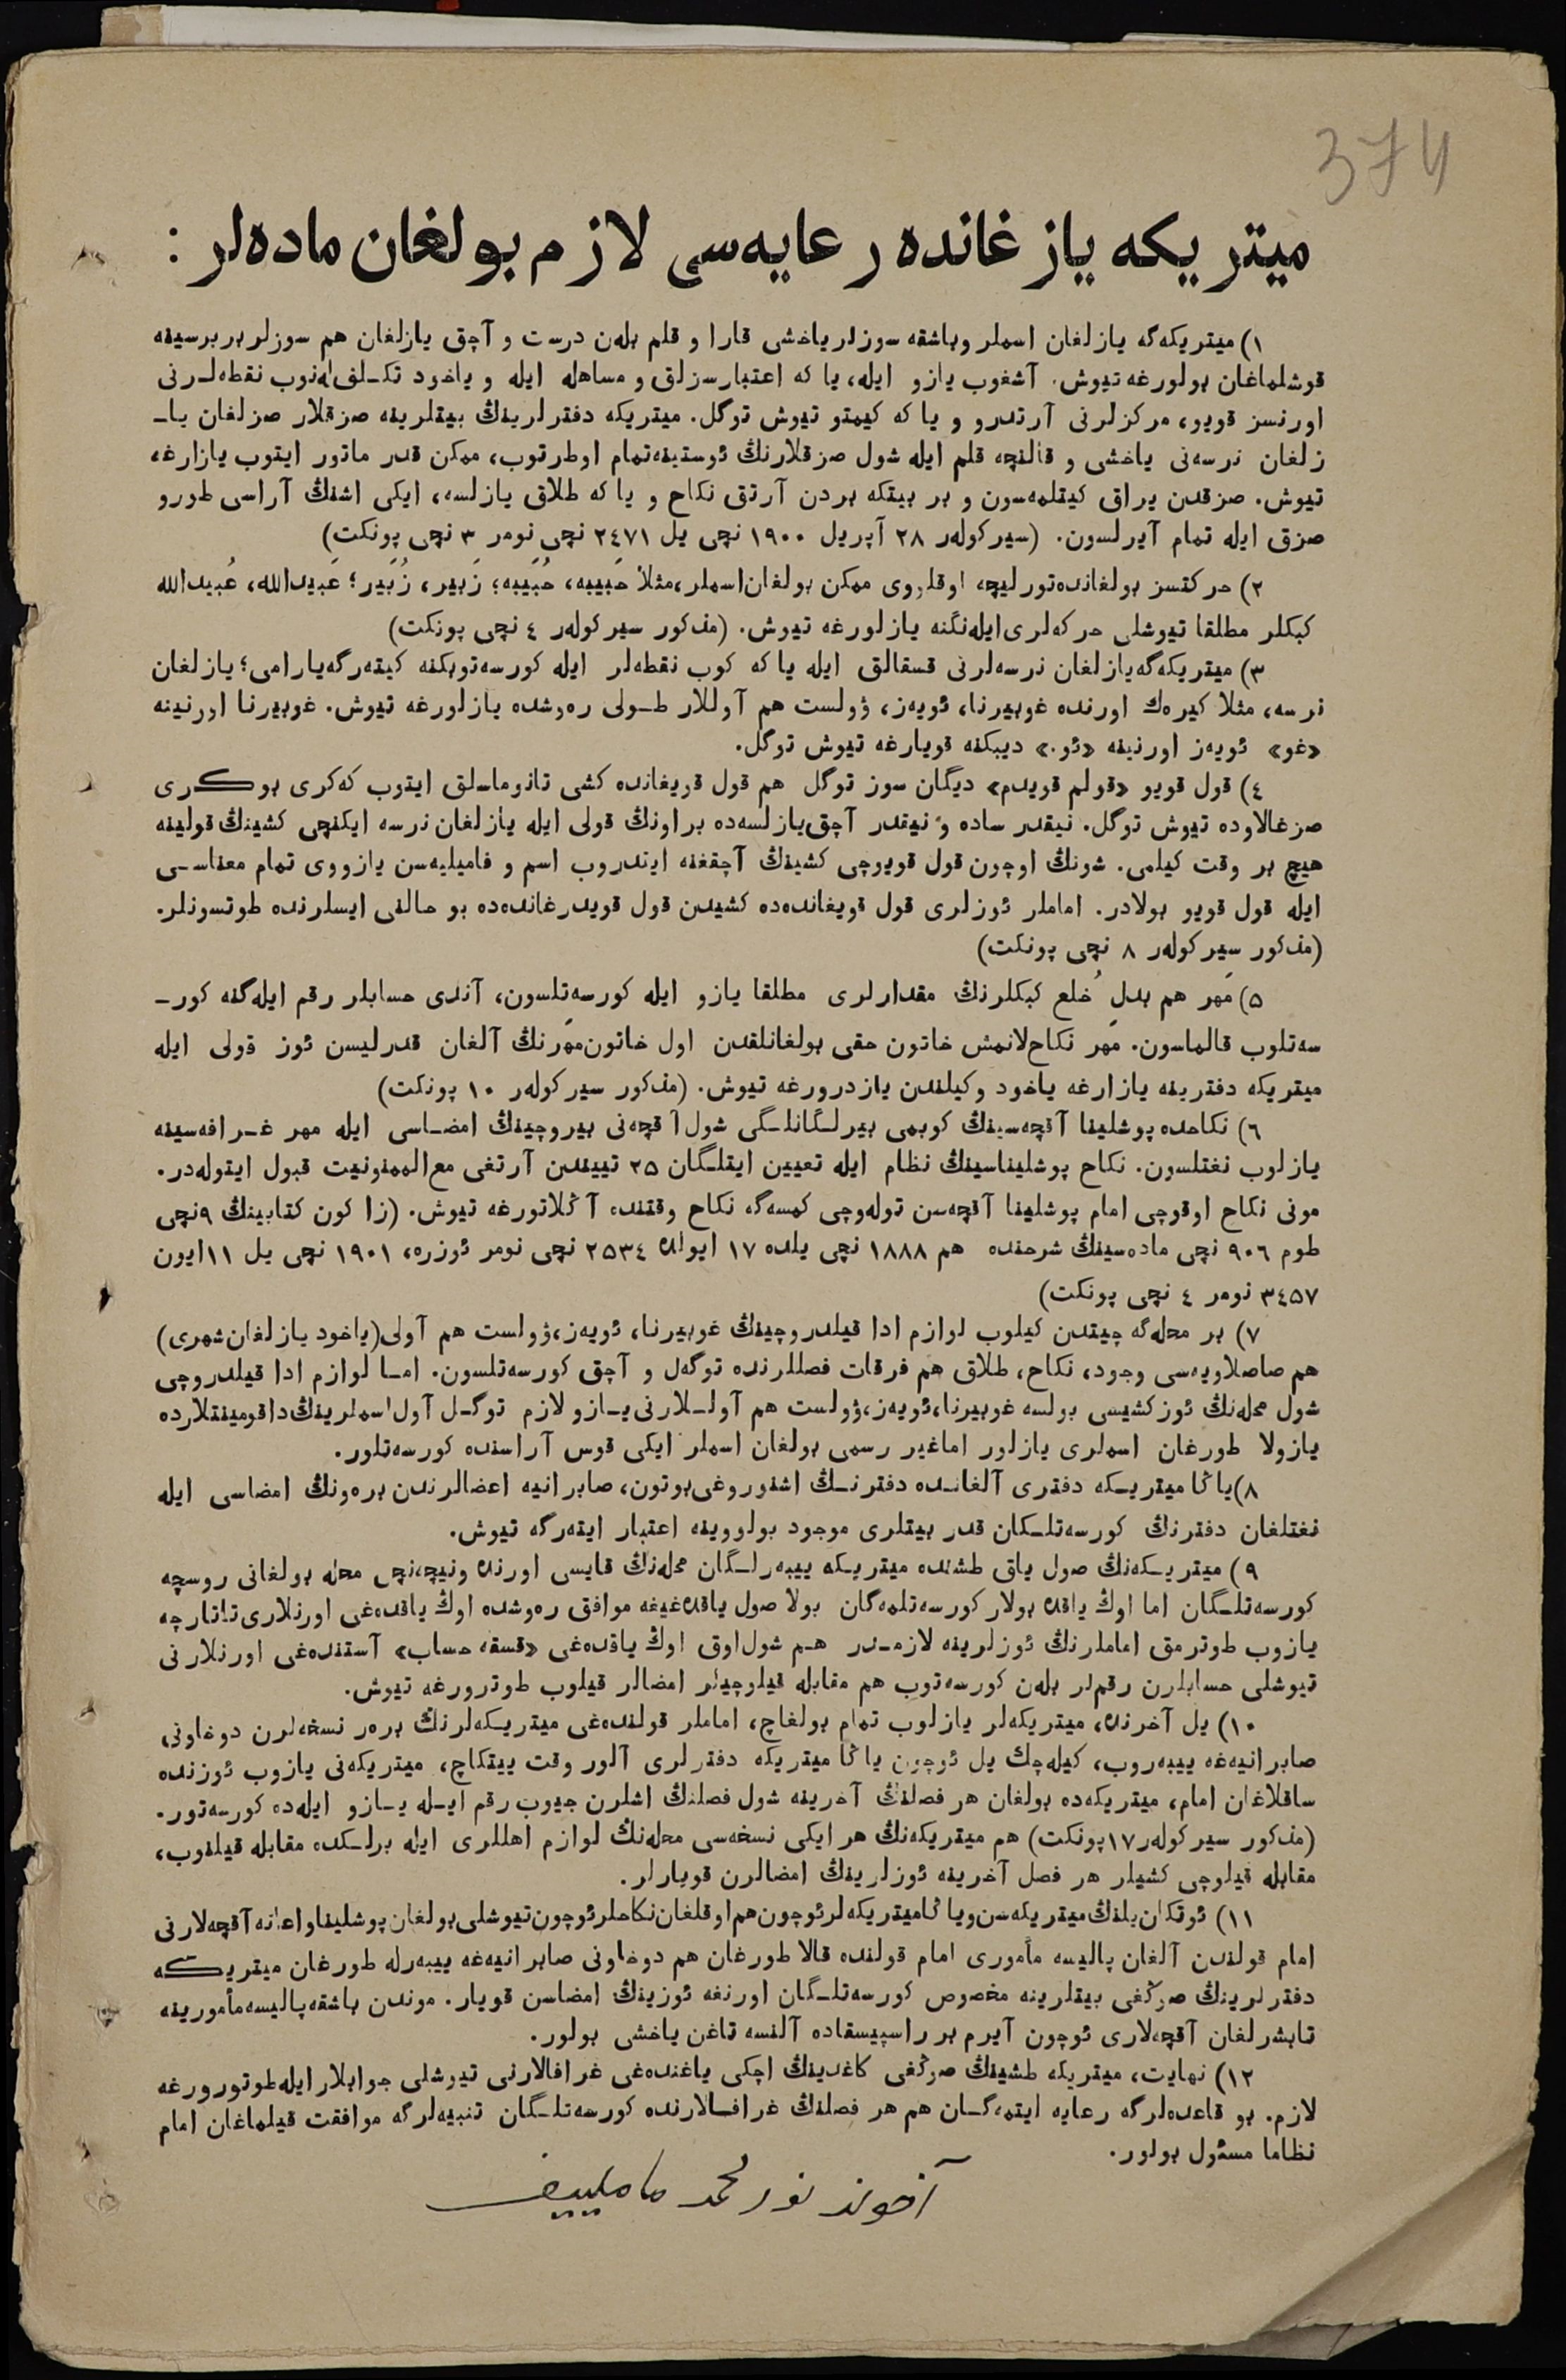 374
میتریكه یازغانده رعایه‌سی لازم بولغان ماده‌لر :
۱) میتریكه‌گه یازلغان اسملر وباشقه سوزلر یاخشی قارا و قلم بله‌ن درست و آچق یازلغان هم سوزلر بر برسینه
قوشلماغان بولورغه تیوش. آشغوب یازو ایله، یا كه اعتبارسزلق و مساهله ایله و یاخود تكـلف له‌نوب نقطه‌لـرنی
اورنسز قویو، مركزلرنی آرتدرو و یا كه كیمتو تیوش توگل. میتریكه دفترلرینڭ بیتلرینه صزقلار صزلغان یاـ
زلغان نرسه‌نی یاخشی و قالنچه قلم ایله شول صزقلارنڭ ئوستینه تمام اوطرتوب، ممكن قدر ماتور ایتوب یازارغه
تیوش. صزقدن یراق كیتلمه‌سون و بر بیتكه بردن آرتق نكاح و یا كه طلاق یازلسه، ایكی اشنڭ آراسی طورو
صزق ایله تمام آیرلسون. (سیركوله‌ر ۲۸ آپریل ۱۹۰۰ نچی یل ۲٤۷۱ نچی نومر ۳ نچی پونكت)
۲) حركتسز بولغانده تورلیچه اوقلووی ممكن بولغان اسملر، مثلا حَبیبه، حُبَیبه؛ زَبیر، زُبَیر؛ عَبیدالله، عُبیدالله
كبكلر مطلقا تیوشلی حركه‌لری ایله‌نگنه یازلورغه تیوش. (مذكور سیركوله‌ر ٤ نچی پونكت)
۳) میتریكه‌گه یازلغان نرسه‌لرنی قسقالق ایله یا كه كوب نقطه‌لر ایله كورسه‌توبكنه كیته‌رگه یارامی؛ یازلغان
نرسه، مثلا كیره‌ك اورنده غوبیرنا، ئویه‌ز، ۋولست هم آوللار طـولی ره‌وشده یازلورغه تیوش. غوبیرنا اورنینه
«غو» ئویه‌ز اورنینه «ئو.» دیبكنه قویارغه تیوش توگل.
٤) قول قویو «قولم قویدم» دیگان سوز توگل هم قول قویغانده كشی تانوماسلق ایتوب كه‌كری بوكـری
صزغالاوده تیوش توگل. نیقدر ساده و نیقدر آچق یازلسه‌ده براونڭ قولی ایله یازلغان نرسه ایكنچی كشینڭ قولینه
هیچ بر وقت كیلمی. شونڭ اوچون قول قویوچی كشینڭ آچقغنه ایندروب اسم و فامیلیه‌سن یازووی تمام معناسـی
ایله قول قویو بولادر. اماملر ئوزلری قول قویغانده‌ده كشیدن قول قویدرغانده‌ده بو حالنی ایسلرنده طوتسونلر.
(مذكور سیركوله‌ر ۸ نچی پونكت)
۵) مَهر هم بدلِ خُلع كبكلرنڭ مقدارلری مطلقا یازو ایله كورسه‌تلسون، آندی حسابلر رقم ایله‌گنه كورـ
سه‌تلوب قالماسون. مَهر نكاح‌لانمش خاتون حقی بولغانلقدن اول خاتون مَهرنڭ آلغان قدرلیسن ئوز قولی ایله
میتریكه دفترینه یازارغه یاخود وكیلندن یازدرورغه تیوش. (مذكور سیركوله‌ر ۱۰ پونكت)
٦) نكاحده پوشلینا آقچه‌سینڭ كوبمی بیرلـگانلـگی شول آقچه‌نی بیروچینڭ امضـاسی ایله مهر غـرافه‌سینه
یازلوب نغتلسون. نكاح پوشلیناسینڭ نظام ایله تعیین ایتلـگان ۲۵ تییندن آرتغی مع‌الممنونیت قبول ایتوله‌در.
مونی نكاح اوقوچی امام پوشلینا آقچه‌سن توله‌وچی كمسه‌گه نكاح وقتنده آڭلاتورغه تیوش. (زاكون كتابینڭ ۹نچی
طوم ۹۰٦ نچی ماده‌سینڭ شرحنده هم ۱۸۸۸ نچی یلده ۱۷ ایولده ۲۵۳٤ نچی نومر ئوزره، ۱۹۰۱ نچی یل ۱۱ایون
۳٤۵۷ نومر ٤ نچی پونكت)
۷) بر محله‌گه چیتدن كیلوب لوازم ادا قیلدروچینڭ غوبیرنا، ئویه‌ز، ۋولست هم آولی(یاخود یازلغان شهری)
هم صاصلاویه‌سی وجود، نكاح، طلاق هم فرقات فصللرنده توگه‌ل و آچق كورسه‌تلسون. امـا لوازم ادا قیلدروچی
شول محله‌نڭ ئوز كشیسی بولسه غوبیرنا، ئویه‌ز، ۋولست هم آولـلارنی یـازو لازم توگـل آول اسملرینڭ داقومینتلارده
یازولا طورغان اسملری یازلور اماغیر رسمی بولغان اسملر ایكی قوس آراسنده كورسه‌تلور.
۸)یاڭا میتریـكه دفتری آلغانـده دفترنـڭ اشنوروغی بوتون، صابرانیه اعضالرندن بره‌ونڭ امضاسی ایله
نغتلغان دفترنڭ كورسه‌تلـكان قدر بیتلری موجود بولووینه اعتبار ایته‌رگه تیوش.
۹) میتریـكه‌نڭ صول یاق طشنده میتریـكه ییبه‌رلـگان محله‌نڭ قایسی اورنده ونیچه‌نچی محله بولغانی روسچه
كورسه‌تلـگان اما اوڭ یاقده بولار كورسه‌تلمه‌گان بولا صول یاقده‌غیغه موافق ره‌وشده اوڭ یاقده‌غی اورنلاری تاتارچه
یازوب طوترمق اماملرنڭ ئوزلرینه لازمـدر هـم شول اوق اوڭ یاقده‌غی «قسقه حساب» آستنده‌غی اورنلارنی
تیوشلی حسابلرن رقم‌لر بله‌ن كورسه‌توب هم مقابله قیلوچیلر امضالر قیلوب طوترورغه تیوش.
۱۰) یل آخرنده، میتریكه‌لر یازلوب تمام بولغاچ، اماملر قولنده‌غی میتریـكه‌لرنڭ بره‌ر نسخه‌لرن دوخاونی
صابرانیه‌غه ییبه‌روب، كیله‌چك یل ئوچون یاڭا میتریكه دفترلری آلور وقت ییتكاچ، میتریكه‌نی یازوب ئوزنده
ساقلاغان امام، میتریكه‌ده بولغان هر فصلنڭ آخرینه شول فصلنڭ اشلرن جیوب رقم ایـله یـازو ایله‌ده كورسه‌تور.
(مذكور سیركوله‌ر ۱۷پونكت) هم میتریكه‌نڭ هر ایكی نسخه‌سی محله‌نڭ لوازم اهللری ایله برلـكده مقابله قیلنوب،
مقابله قیلوچی كشیلر هر فصل آخرینه ئوزلرینڭ امضالرن قویارلر.
۱۱) ئوتكان یلنڭ میتریكه‌سن ویاڭا میتریكه‌لر ئوچون هم اوقلغان نكاحلر ئوچون تیوشلی بولغان پوشلینا واعانه آقچه‌لارنی
امام قولندن آلغان پالیسه مأموری امام قولنده قالا طورغان هم دوخاونی صابرانیه‌غه ییبه‌رله طورغان میتریـكه
دفترلرینڭ صوڭغی بیتلرینه مخصوص كورسه‌تلـگان اورنغه ئوزینڭ امضاسن قویار. موندن باشقه پالیسه مأمورینه
تابشرلغان آقچه‌لاری ئوچون آیرم بر راسپیسقاده آلنسه تاغن یاخشی بولور.
۱۲) نهایت، میتریكه طشینڭ صوڭغی كاغدینڭ اچكی یاغنده‌غی غرافالارنی تیوشلی جوابلار ایله طوتورورغه
لازم. بو قاعده‌لرگه رعایه ایتمه‌گـان هم هر فصلنڭ غرافـالارنده كورسه‌تلـگان تنبیه‌لرگه موافقت قیلماغان امام
نظاما مسئول بولور.
آخوند نورمحمد مامليیف